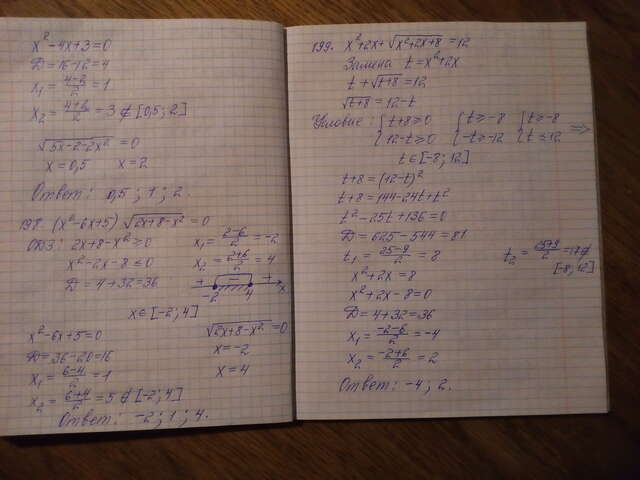 x² - 4x + 3 = 0
D = 16 - 12 = 4
x₁ = (4-2)/2 = 1
x₂ = (4+2)/2 = 3 ∉ [0,5; 2]
√(5x-2-2x²) = 0
x = 0,5 x = 2
Ответ: 0,5; 1; 2.
198. (x² - 6x + 5) √(2x+8-x²) = 0
ОДЗ: 2x + 8 - x² ≥ 0 x₁ = (2-6)/2 = -2
x² - 2x - 8 ≤ 0 x₂ = (2+6)/2 = 4
D = 4 + 32 = 36
+ - +
-2 4 x
x ∈ [-2; 4]
x² - 6x + 5 = 0 √(2x+8-x²) = 0
D = 36 - 20 = 16 x = -2
x₁ = (6-4)/2 = 1 x = 4
x₂ = (6+4)/2 = 5 ∉ [-2; 4]
Ответ: -2; 1; 4.
199. x² + 2x + √(x²+2x+8) = 12
Замена t = x² + 2x
t + √(t+8) = 12
√(t+8) = 12 - t
Условие: { t+8 ≥ 0 { t ≥ -8 { t ≥ -8
{ 12-t ≥ 0 { -t ≥ -12 { t ≤ 12 ⇒
t ∈ [-8; 12]
t + 8 = (12-t)²
t + 8 = 144 - 24t + t²
t² - 25t + 136 = 0
D = 625 - 544 = 81
t₁ = (25-9)/2 = 8 t₂ = (25+9)/2 = 17 ∉ [-8; 12]
x² + 2x = 8
x² + 2x - 8 = 0
D = 4 + 32 = 36
x₁ = (-2-6)/2 = -4
x₂ = (-2+6)/2 = 2
Ответ: -4; 2.